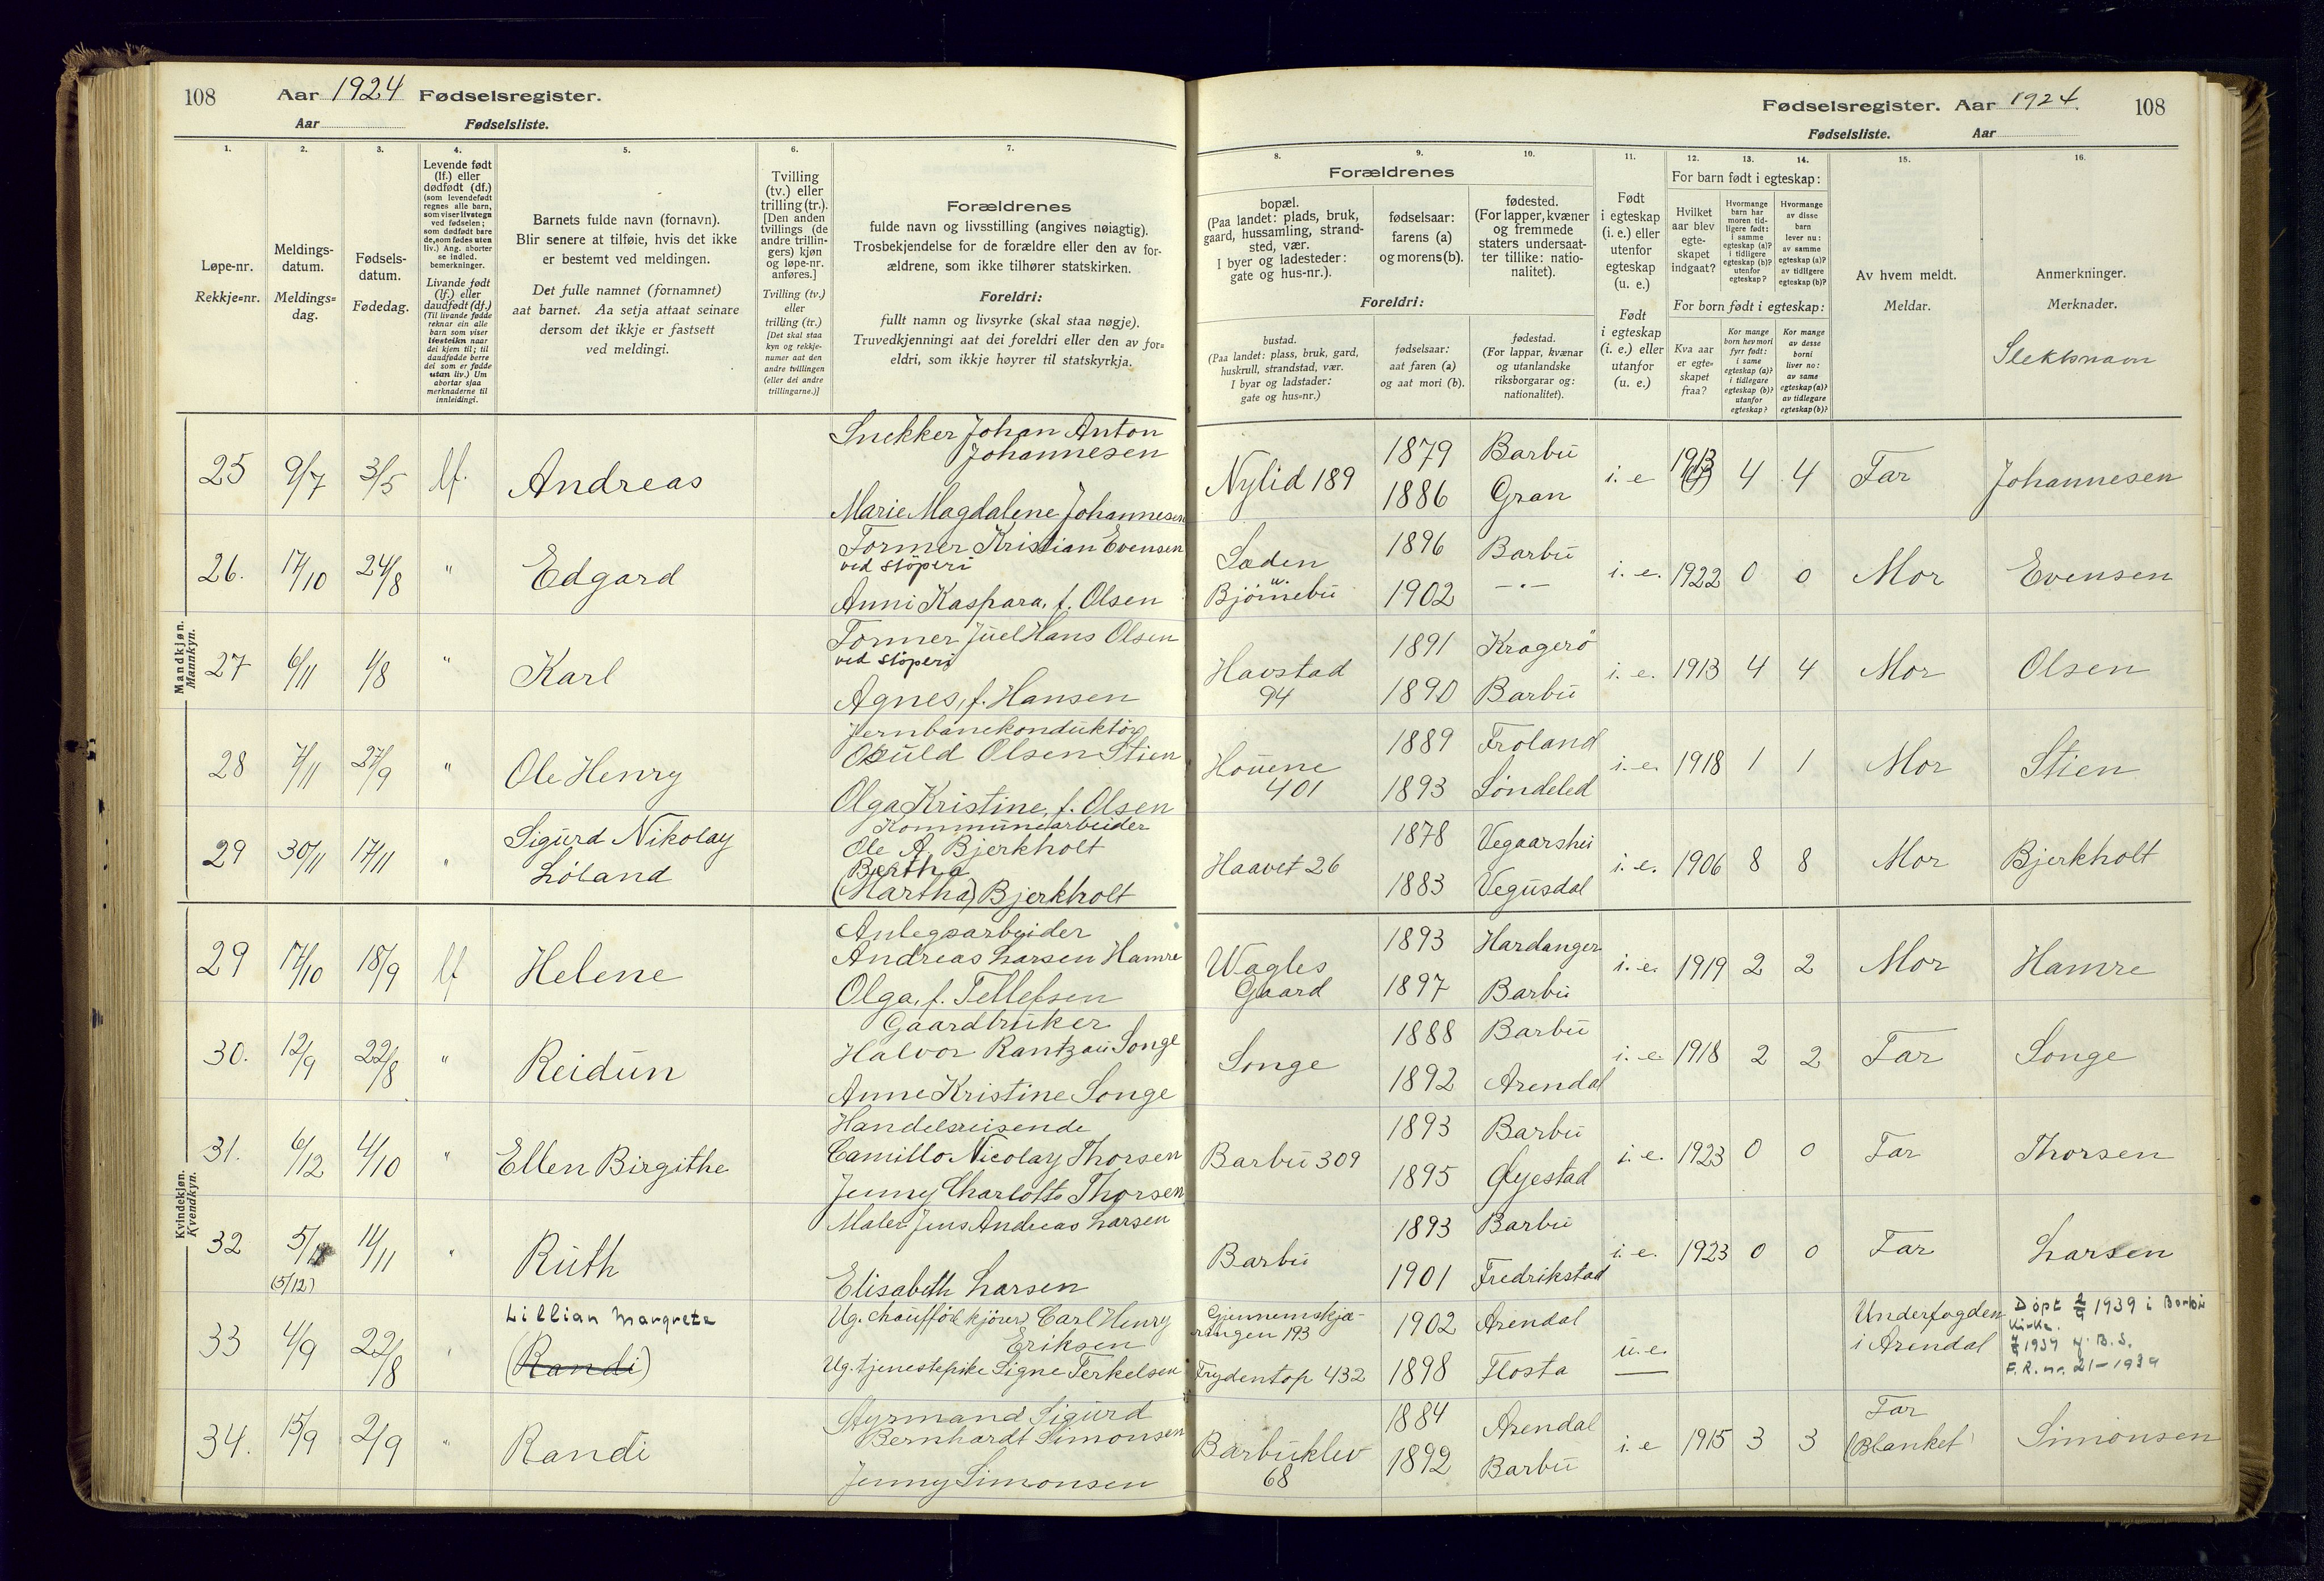 108 Aar 1924 Fødselsregister.
Aar Fødselsliste.
Fødselsregister. Aar 1924. 108
Fødselsliste. Aar
1.
Løpe-nr.
Rekkje=nr.
2.
Meldings-
datum.
Meldings=
dag.
3.
Fødsels-
datum.
Fødedag.
4.
Levende født
(lf.) eller
dødfødt (df.)
(som levendefødt
regnes alle barn,
som viser livstegn
ved fødselen;
som dødfødt bare
de, som fødes uten
liv.) Ang. aborter
se indled.
bemerkninger.
Livande født
(lf.) eller
daudfødt (df.)
(Til livande fødde
reknar ein alle
barn som viser
livsteikn naar
dei kjem til; til
daudfødde berre
dei som er fødde
utan liv.) Um
abortar sjaa
merknaderne til
innleidingi.
5.
Barnets fulde navn (fornavn).
Blir senere at tilføie, hvis det ikke
er bestemt ved meldingen.
Det fulle namnet (fornamnet)
aat barnet. Aa setja attaat seinare
dersom det ikkje er fastsett
ved meldingi.
6.
Tvilling
(tv.) eller
trilling (tr.).
[Den anden
tvillings (de
andre trillin-
gers) kjøn
og løpe-nr.
anføres.]
Tvilling (tv.)
eller
trilling (tr.)
[Det skal staa
kyn og rekkje-
numer aat den
andre tvillingen
(eller dei andre
trillingarne.)]
7.
Forældrenes
fulde navn og livsstilling (angives nøiagtig).
Trosbekjendelse for de forældre eller den av for-
ældrene, som ikke tilhører statskirken.
Foreldri:
fullt namn og livsyrke (skal staa nøgje).
Truvedkjenningi aat dei foreldri eller den av for=
eldri, som ikkje høyrer til statskyrkja.
Forældrenes
8.
bopæl.
(Paa landet: plads, bruk,
gaard, hussamling, strand-
sted, vær.
I byer og ladesteder:
gate og hus-nr.).
9.
fødselsaar:
farens (a)
og morens (b).
10.
fødested.
(For lapper, kvæner
og fremmede
staters undersaat-
ter tillike: natio-
nalitet).
Foreldri:
bustad.
(Paa landet: plass, bruk, gard,
huskrull, strandstad, vær.
I byar og ladstader:
gate og hus=nr.)
fødselsaar:
aat faren (a)
og aat mori (b).
fødestad.
(For lappar, kvænar
og utanlandske
riksborgarar og:
nationalitet).
11.
Født
i egteskap
(i. e.) eller
utenfor
egteskap
(u. e.)
Født
i egteskap
(i. e.) eller
utanfor
(u. e.)
12. 13. 14.
For barn født i egteskap:
Hvilket
aar blev
egte-
skapet
indgaat?
Hvormange
barn har
moren tid-
ligere født:
i samme
egteskap (a)?
i tidligere
egteskap (b)?
utenfor
egteskap?
Hvormange
av disse
barn
lever nu:
av samme
egteskap (a)?
av tidligere
egteskap (b)?
For born født i egteskap:
Kva aar
er egte-
skapet
fraa?
Kor mange
born hev mori
fyrr født:
i same
egteskap (a)?
i tidlegare
egteskap (b)?
utanfor
egteskap?
Kor mange
av desse
borni
liver no:
av same
egteskap (a)?
av tidlegare
egteskap (b)?
15.
Av hvem meldt.
Meldar.
16.
Anmerkninger.
Merknader.
Slektsnavn
Mandkjøn.
Mannkyn.
25 9/7 3/5 lf. Andreas
Snekker Johan Anton
Johannesen
Marie Magdalene Johannesen
Nylid 189 1879 Barbu
1886 Gran
i. e 1913 4 4 Far Johannesen
26. 17/10 24/8 " Edgard
Former Kristian Evensen
ved støperi
Anni Kaspara, f. Olsen
Laden
u.
Bjørnebu
1896 Barbu
1902 - " -
i. e. 1922 0 0 Mor Evensen
27 6/11 1/8 " Karl
Former Juel Hans Olsen
ved støperi
Agnes, f. Hansen
Havstad
94
1891 Kragerö
1890 Barbu
i. e. 1913 4 4 Mor Olsen
28 7/11 27/9 " Ole Henry
Jernbanekonduktør
Osuld Olsen Stien
Olga Kristine, f. Olsen
Houene
401
1889 Froland
1893 Söndeled
i. e. 1918 1 1 Mor Stien
29 30/11 17/11 " Sigurd Nikolay
Löland
Kommunearbeider
Ole A. Bjerkholt
Bertha
(Martha) Bjerkholt
Haavet 26
1878 Vegaarshei
1883 Vegusdal
i. e. 1906 8 8 Mor Bjerkholt
Kvindekjøn.
Kvendkyn.
29 17/10 18/9 lf Helene
Anlegsarbeider
Andreas Larsen Hamre
Olga, f. Tellefsen
Wagles
Gaard
1893 Hardanger
1897 Barbu
i. e. 1919 2 2 Mor Hamre
30. 12/9 22/8 " Reidun
Gaardbruker
Halvor Rantzau Songe
Anne Kristine Songe
Songe
1888 Barbu
1892 Arendal
i. e. 1918 2 2 Far Songe
31. 6/12 4/10 " Ellen Birgithe
Handelsreisende
Camillo Nicolay Thorsen
Jenny Charlotte Thorsen
Barbu 309
1893 Barbu
1895 Øyestad
i. e. 1923 0 0 Far Thorsen
32 (5/12) 14/11 " Ruth
Maler Jens Andreas Larsen
Elisabeth Larsen
Barbu
1893 Barbu
1901 Fredrikstad
i. e. 1923 0 0 Far Larsen
33 4/9 22/8 " Lillian Margrete
(Randi)
Ug. chaufför kjörer Carl Henry
Eriksen
Ug. tjenestepike Signe Terkelsen
Gjennemskjæ-
ringen 193
Frydentop 432
1902 Arendal
1898 Flosta
u. e.
Underfogden
i Arendal
Döpt 2/4 1939 i Barbu
Kirke.
F.R. nr. 21-1939
34. 15/9 2/9 " Randi
Styrmand Sigurd
Bernhardt Simonsen
Jenny Simonsen
Barbuklev
68
1884 Arendal
1892 Barbu
i. e 1915 3 3 Far
(Blanket)
Simonsen